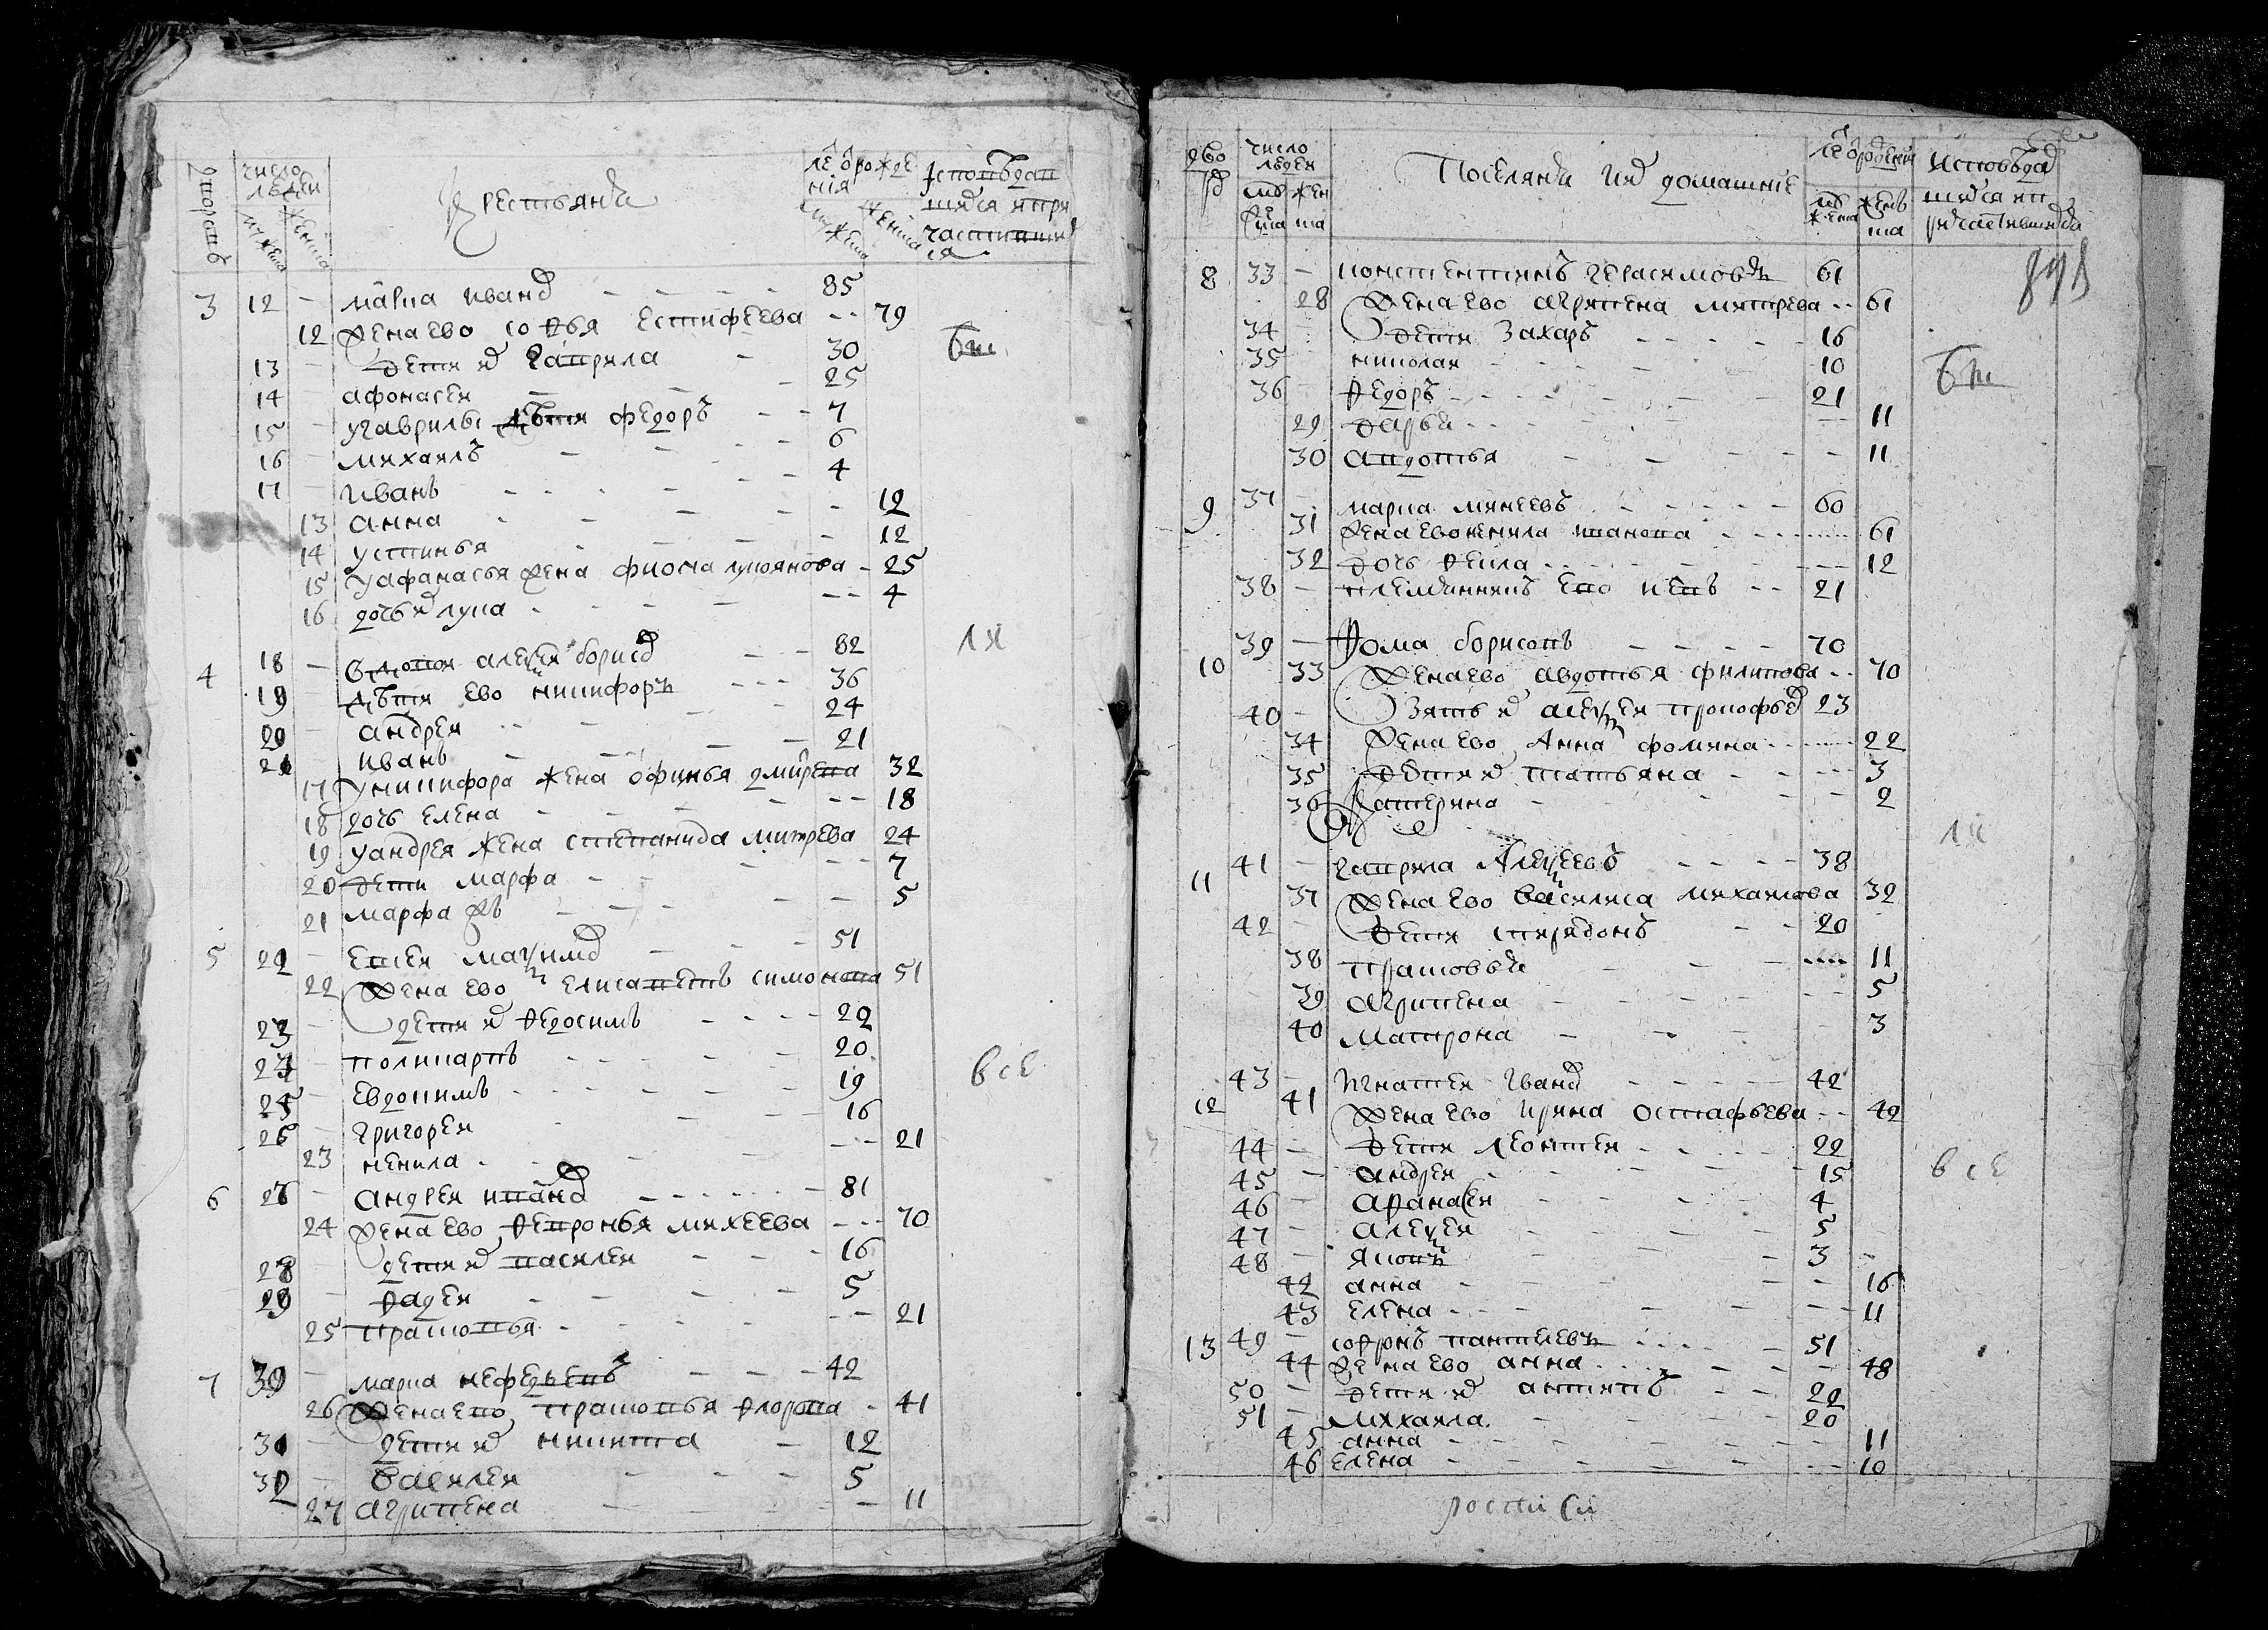 дворовъ число людеи Крестьяня лѣ ѿ рождения Исповѣдавшихся и причастившихся
мужеска женска мужеска женска
3 12 — марка иванов 85
12 жена ево софья естифеева 79
13 дети их гаврила 30
14 афонасеи 25
15 у гаврилы дѣти федоръ 7
16 михаилъ 6
17 Иванъ 4
13 анна 12
14 устинья 12
15 у афанасья жена фиона лукоянова 25
16 дочь их лукиа 4
4 18 — алеѯеи борисов 82
19 дѣти ево никифоръ 36
20 андреи 24
21 иванъ 21
17 у никифора жена офимья дмитрева 32
18 дочь елена 18
19 у андрея жена степанида митрева 24
20 дети марфа 7
21 марфа жъ 5
5 22 — евсеи маѯимов 51
22 жена ево елисаветъ симонова 51
23 — дети их федосимъ 22
24 — поликарпъ 20
25 евдокимъ 19
26 григореи 16
23 ненила 21
6 27 — андреи иванов 81
24 жена ево февронья михеева 70
28 дети их василеи 16
29 фадеи 5
25 прасковья 21
7 30 — марка нефедьевъ 42
26 жена ево прасковья флорова 41
31 дети их никита 12
32 василеи 5
27 агрипена 11
все
дворов число людеи Поселяня и их домашние лѣ ѿ рождения Исповѣдавшихся и причастившихся
муже ска жен ска муже ска женска
8 33 — констентинъ герасимовъ 61
28 жена ево агрипена митрева 61
34 дети Захаръ 16
35 николаи 10
36 федоръ 21
29 дарья 11
30 авдотья 11
9 37 — марка минеевъ 60
31 жена ево ненила иванова 61
32 дочь фекла 12
38 — племянникъ ево иевъ 21
10 39 — фома борисовъ 70
33 жена ево авдотья филипова 70
40 — Зять их алеѯеи прокофьев 23
34 жена ево Анна фомина 22
35 дети их татьяна 3
36 катерина 2
11 41 — гаврила Алеѯеевъ 38
37 жена ево василиса михаилова 32
42 — дети спиридонъ 20
38 прасковья 11
39 агрипена 5
40 матрона 3
12 43 — игнатеи Иванов 42
41 жена ево ирина остафьева 42
44 — дети леонтеи 22
45 — андреи 15
46 — афанасеи 4
47 — алеѯеи 5
48 — яковъ 3
42 анна 16
43 елена 11
все
13 49 — софронъ пантелеевъ 51
44 жена ево анна 48
50 — дети их антипъ 22
51 — михаила 20
45 анна 11
46 елена 10